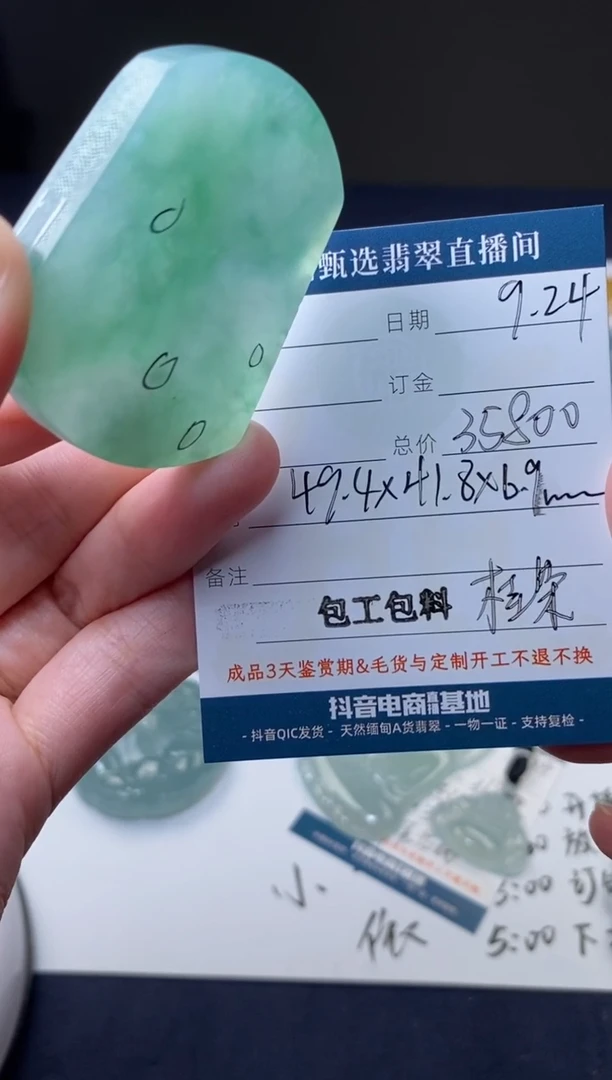 甄选翡翠直播间
日期 9.24
订金
总价 35800
49.4x41.8x6.9mm
备注
包工包料
成品3天鉴赏期&毛货与定制开工不退不换
抖音电商 基地
- 抖音QIC发货 - 天然缅甸A货翡翠 - 一物一证 - 支持复检 -
小.
5:00
5:00 下